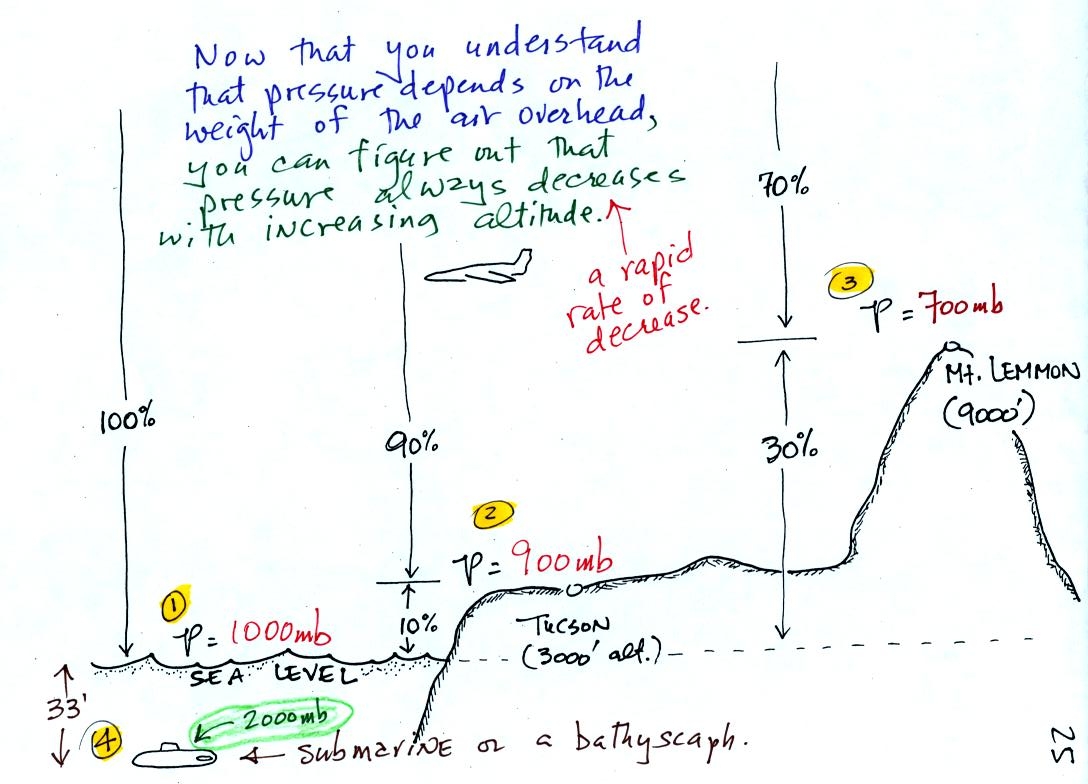 Now that you understand
that pressure depends on the
weight of the air overhead,
you can figure out that
pressure always decreases
with increasing altitude.
a rapid
rate of
decrease.
70%
3
P = 700mb
Mt. LEMMON
(9000')
100%
90%
30%
2
P = 900mb
10%
TUCSON
(3000' alt.)
1
P = 1000mb
SEA LEVEL
33'
4
2000mb
submarine or a bathyscaph.
25